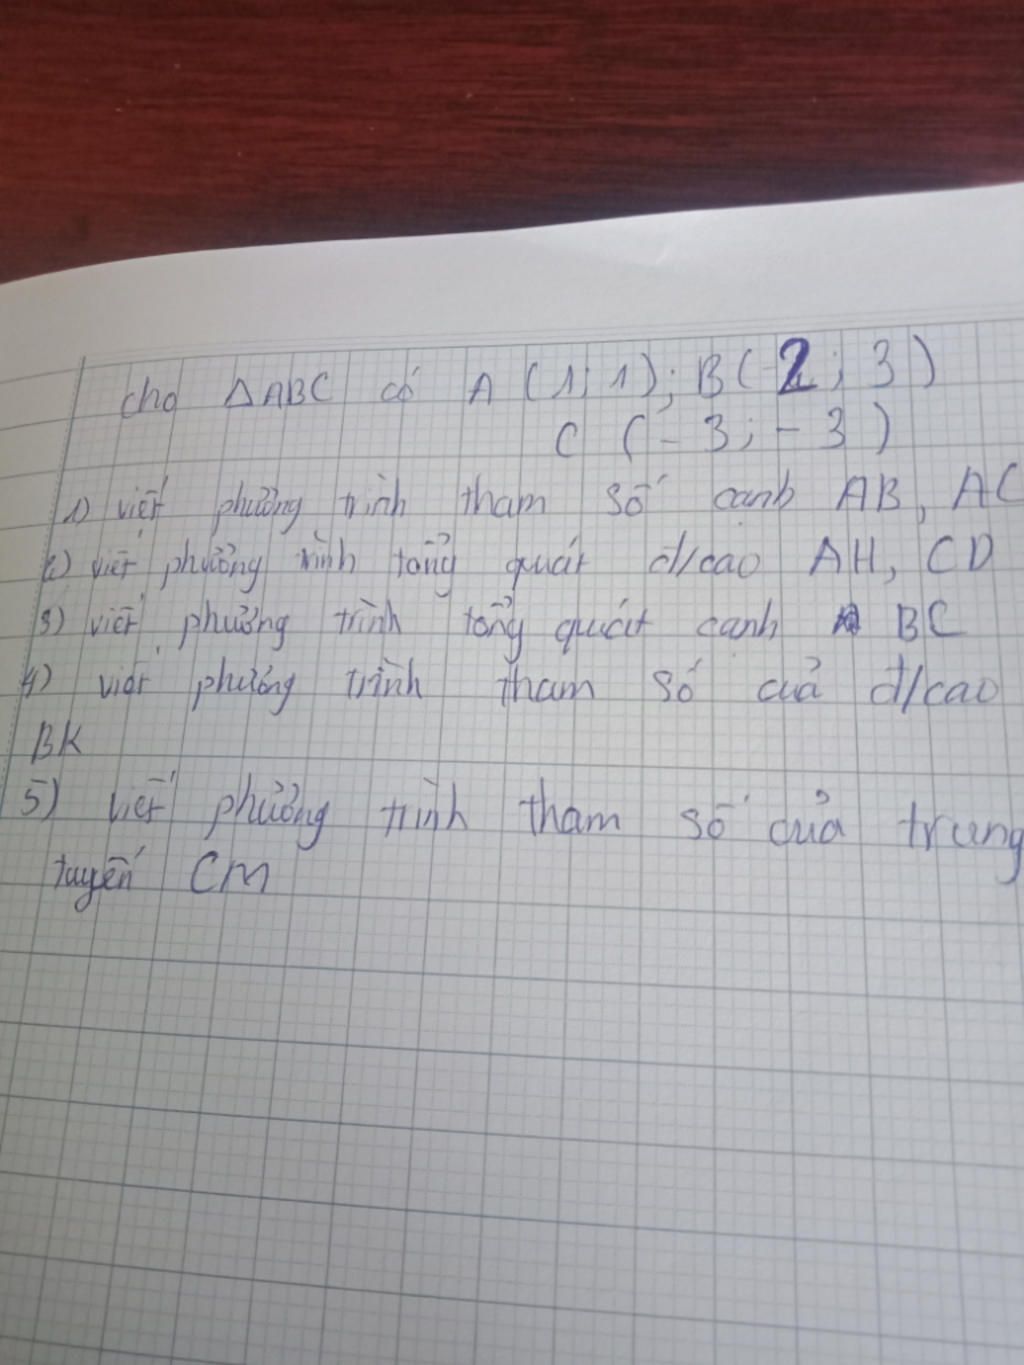 cho ΔABC có A (1; 1); B(2; 3)
C (-3; -3)
1) viết phương trình tham số cạnh AB, AC
2) viết phương trình tổng quát đ/cao AH, CD
3) viết phương trình tổng quát cạnh BC
4) viết phương trình tham số của đ/cao
BK
5) viết phương trình tham số của trung
tuyến CM